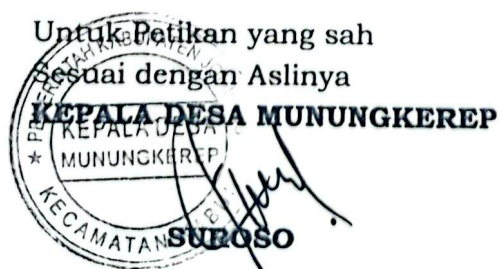 Untuk Petikan yang sah
Sesuai dengan Aslinya
KEPALA DESA MUNUNGKEREP
PEMERINTAH KABUPATEN
KEPALA DESA
MUNUNGKEREP
KECAMATAN
SUROSO